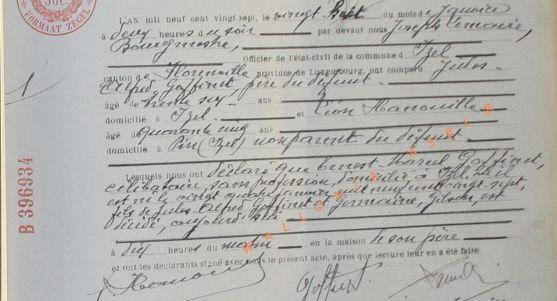 FORMAAT ZEGEL
L'AN mil neuf cent vingt sept, le vingt sept du mois de Janvier
à deux heures du soir par devant nous Joseph
Bourgmestre,
Officier de l'état-civil de la commune d'Izel
canton de Florenville province de Luxembourg, ont comparu Jules
Alfred Goffinet père du défunt
âgé de trente six ans
domicilié à Izel et Léon
âgé de quarante cinq ans
domicilié à Pin (Izel) non parent du défunt
1
Lesquels nous ont déclaré que Ernest Marcel Goffinet,
célibataire, sans profession, domicilié à Izel
est né le vingt quatre janvier mil neuf cent vingt sept,
fils de Jules Alfred Goffinet et Germaine est
décédé, aujourd'hui
à dix heures du matin en la maison de son père
et ont les déclarants signé avec nous le présent acte, après que lecture leur en a été faite.
B 396934